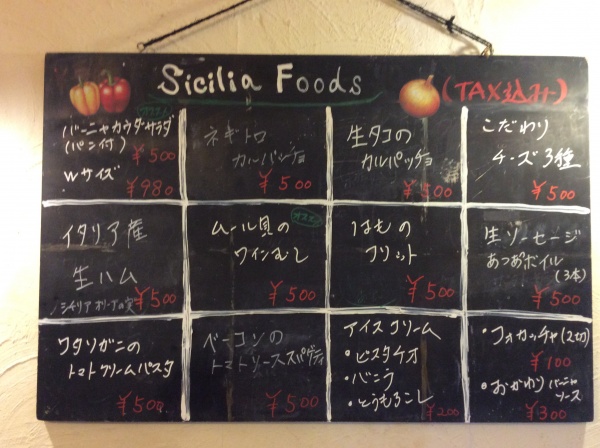 Sicilia Foods
(TAX込み)
バーニャカウダサラダ
(パン付)
¥500
Wサイズ
¥980
ネギトロ
カルパッチョ
¥500
生タコの
カルパッチョ
¥500
こだわり
チーズ3種
¥500
イタリア産
生ハム
¥500
オススメ
ムール貝の
ワインむし
¥500
はもの
フリット
¥500
生ソーセージ
あつあつボイル
(3本)
¥500
ワタリガニの
トマトクリームパスタ
¥500
ベーコンの
トマトソーススパゲティ
¥500
アイスクリーム
・ピスタチオ
・バニラ
・とうもろこし
¥200
・フォカッチャ(2切)
¥100
・おかわりバーニャ
ソース
¥300